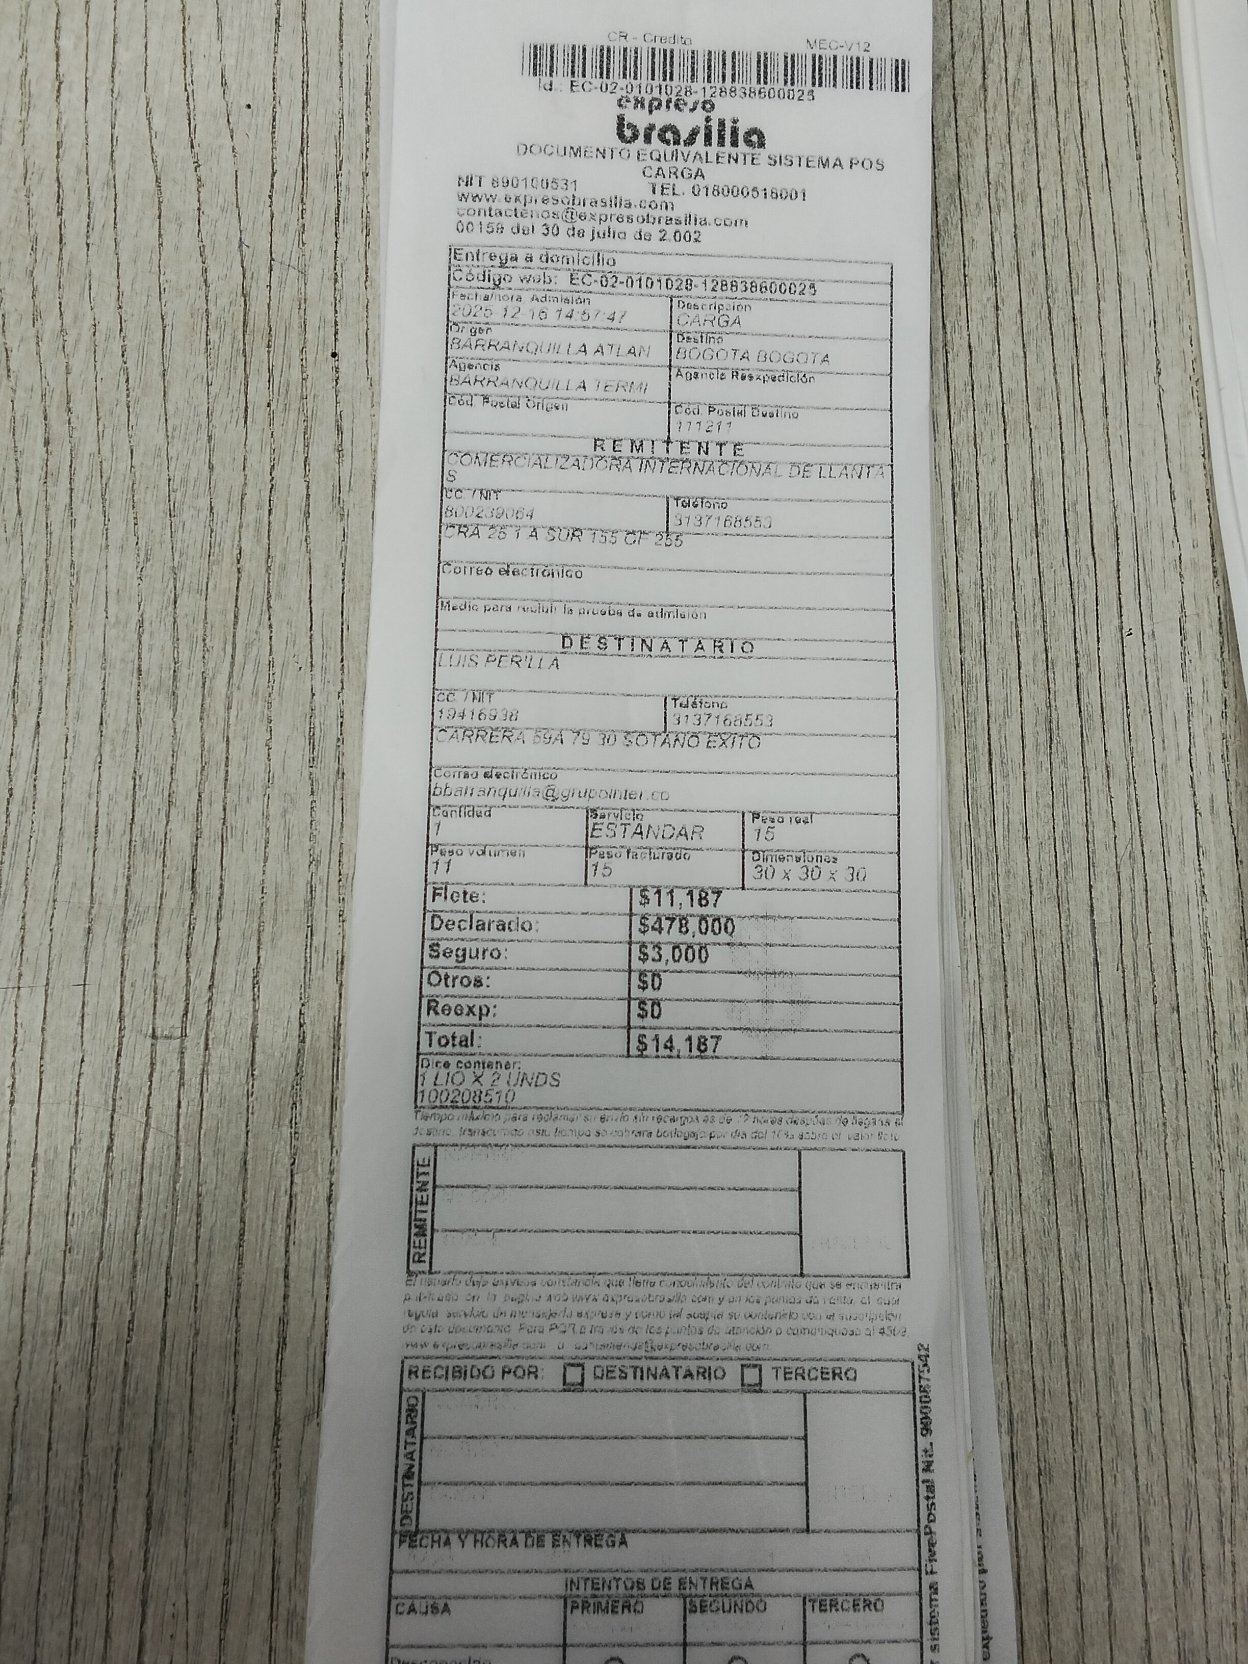 CR - Credito MEC-V12
Id.: EC-02-0101028-128838600025
expreso
brasilia
DOCUMENTO EQUIVALENTE SISTEMA POS
CARGA
NIT 890100531 TEL. 018000518001
www.expresobrasilia.com
contactenos@expresobrasilia.com
00159 del 30 de julio de 2.002
Entrega a domicilio
Código web: EC-02-0101028-128838600025
Fecha/hora Admisión Descripción
2025-12-16 14:57:47 CARGA
Origen Destino
BARRANQUILLA ATLAN BOGOTA BOGOTA
Agencia Agencia Reexpedición
BARRANQUILLA TERMI
Cód. Postal Origen Cód. Postal Destino
111211
REMITENTE
COMERCIALIZADORA INTERNACIONAL DE LLANTA
S
CC. / NIT Teléfono
800239064 3137168553
CRA 25 1 A SUR 155 OF 255
Correo electrónico
Medio para recibir la prueba de admisión
DESTINATARIO
LUIS PERILLA
CC. / NIT Teléfono
19416938 3137168553
CARRERA 59A 79 30 SOTANO EXITO
Correo electrónico
bbarranquilla@grupointer.co
Cantidad Servicio Peso real
1 ESTANDAR 15
Peso volumen Peso facturado Dimensiones
11 15 30 x 30 x 30
Flete: $11,187
Declarado: $478,000
Seguro: $3,000
Otros: $0
Reexp: $0
Total: $14,187
Dice contener:
1 LIO X 2 UNDS
100208510
Tiempo máximo para reclamar su envío sin recargos es de 72 horas después de llegada al
destino, transcurrido este tiempo se cobrará bodegaje por día del 10% sobre el valor flete
REMITENTE
El usuario deja expresa constancia que tiene conocimiento del contrato que se encuentra
publicado en la pagina web www.expresobrasilia.com y en los puntos de venta, el cual
regula servicio de mensajería expresa y como tal acepta su contenido con la suscripción
de este documento. Para PQR a través de los puntos de atención o comuníquese al
www.expresobrasilia.com o
RECIBIDO POR: DESTINATARIO TERCERO
DESTINATARIO
FECHA Y HORA DE ENTREGA
INTENTOS DE ENTREGA
CAUSA PRIMERO SEGUNDO TERCERO
sistema FivePostal Nit. 900087542